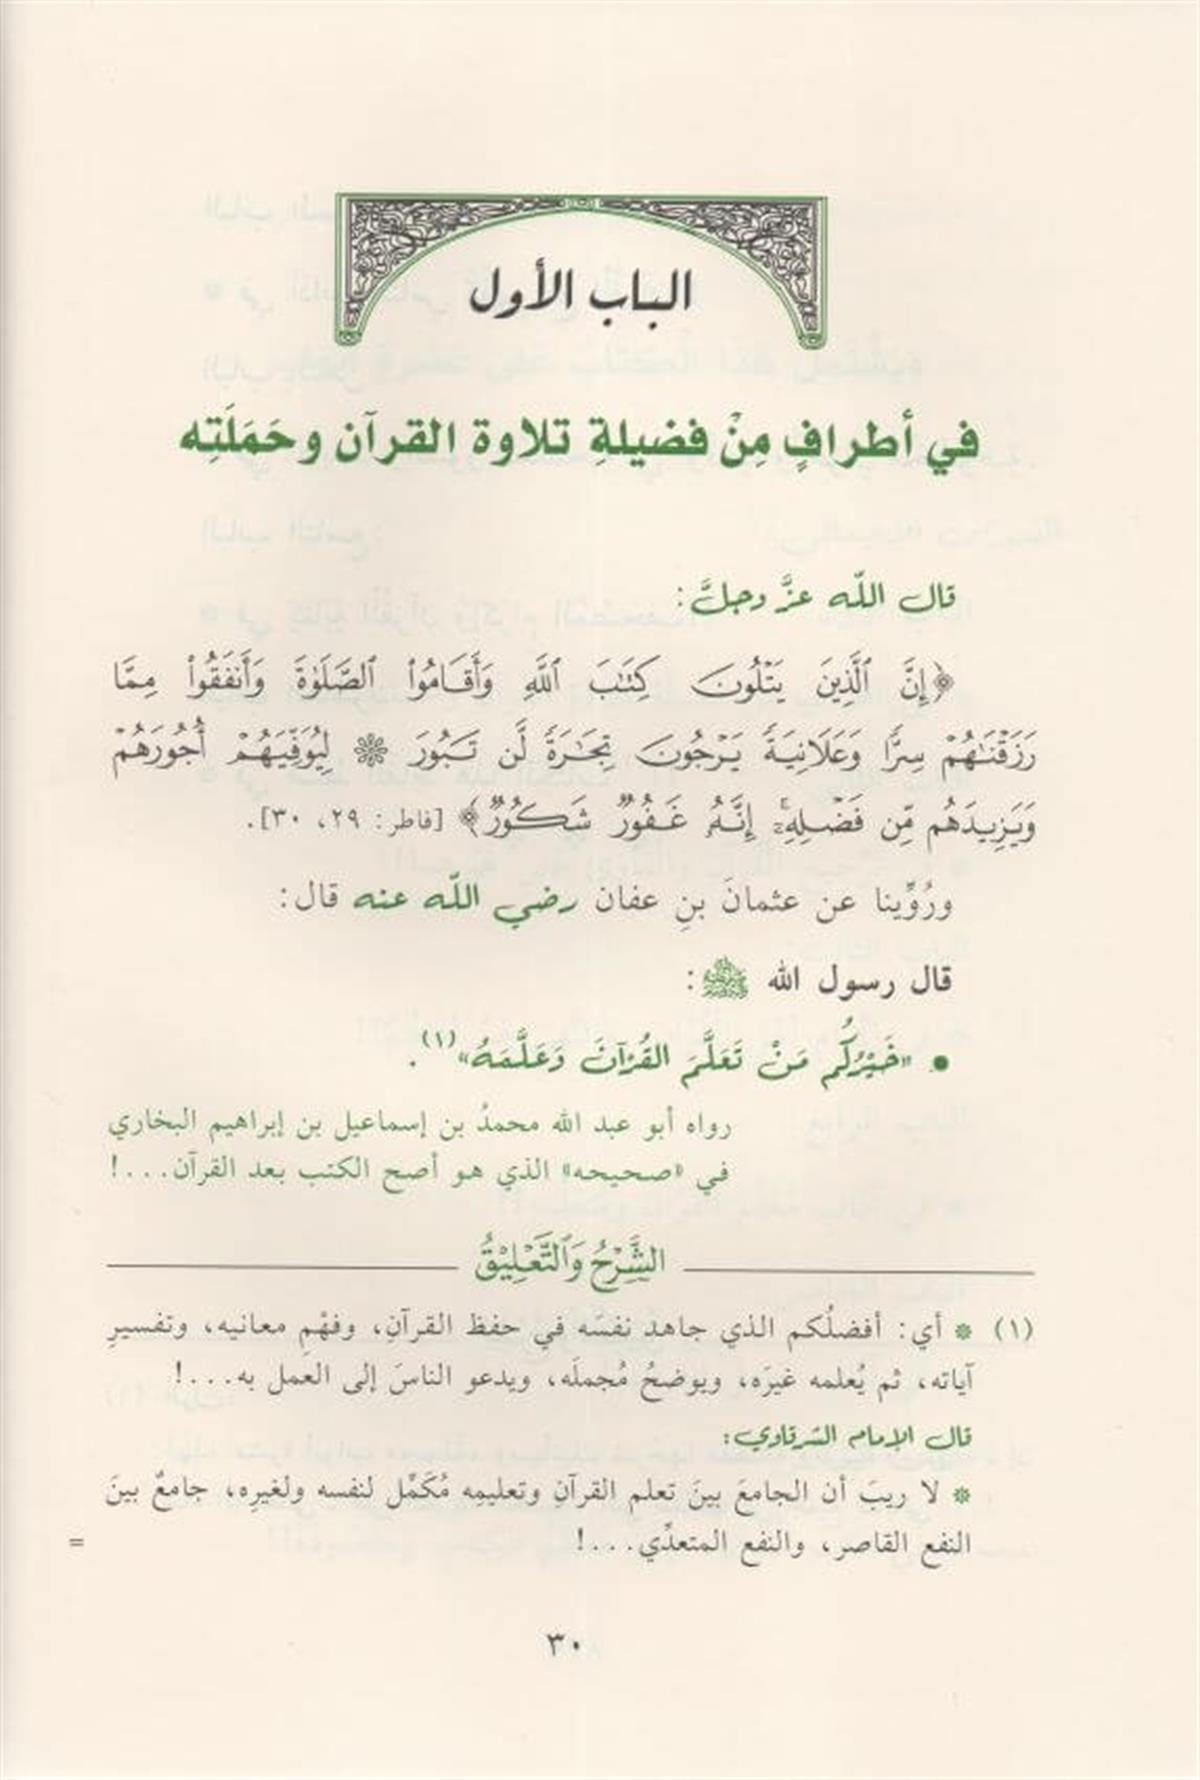 الباب الأول
في أطرافٍ مِنْ فضيلةِ تلاوة القرآن وحَمَلَتِه
قال اللّه عزَّ وجلَّ:
﴿إِنَّ ٱلَّذِينَ يَتْلُونَ كِتَٰبَ ٱللَّهِ وَأَقَامُوا۟ ٱلصَّلَوٰةَ وَأَنفَقُوا۟ مِمَّا
رَزَقْنَٰهُمْ سِرًّا وَعَلَانِيَةً يَرْجُونَ تِجَٰرَةً لَّن تَبُورَ ۞ لِيُوَفِّيَهُمْ أُجُورَهُمْ
وَيَزِيدَهُم مِّن فَضْلِهِۦٓ ۚ إِنَّهُۥ غَفُورٌ شَكُورٌ﴾ [فاطر: ٢٩، ٣٠].
ورُوِّينا عن عثمانَ بنِ عفان رضي اللّه عنه قال:
قال رسول الله ﷺ:
• «خَيْرُكُم مَنْ تَعَلَّمَ القُرْآنَ وَعَلَّمَهُ»(١).
رواه أبو عبد الله محمدُ بن إسماعيل بن إبراهيم البخاري
في «صحيحه» الذي هو أصح الكتب بعد القرآن...!
الشَّرْحُ وَالتَّعْلِيْقُ
(١) * أي: أفضلُكم الذي جاهد نفسَه في حفظ القرآنِ، وفهْمِ معانيه، وتفسيرِ
آياته، ثم يُعلمه غيرَه، ويوضحُ مُجملَه، ويدعو الناسَ إلى العَمل به...!
قال الإمام الشرقاوي:
* لا ريبَ أن الجامعَ بينَ تعلم القرآنِ وتعليمِه مُكَمِّل لنفسه ولغيرِه، جامعٌ بينَ
النفع القاصر، والنفع المتعدِّي...!
=
٣٠